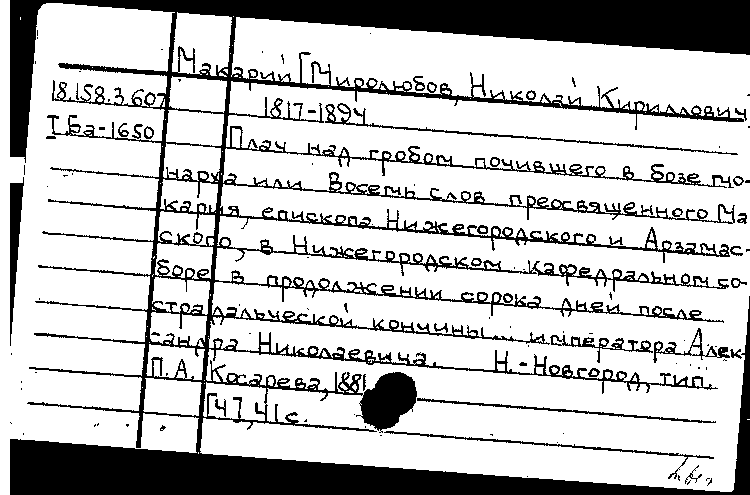 Макарий [Миролюбов, Николай Кириллович]
18.158.3.607 1817-1894.
I.Ба-1650 Плач над гробом почившего в бозе мо-
нарха или Восемь слов преосвященного Ма
кария, епископа Нижегородского и Арзамас-
ского, в Нижегородском кафедральном со-
боре в продолжении сорока дней после
страдальческой кончины... императора Алек-
сандра Николаевича. Н.-Новгород, тип.
П.А. Косарева, 1881
[4], 41 с.